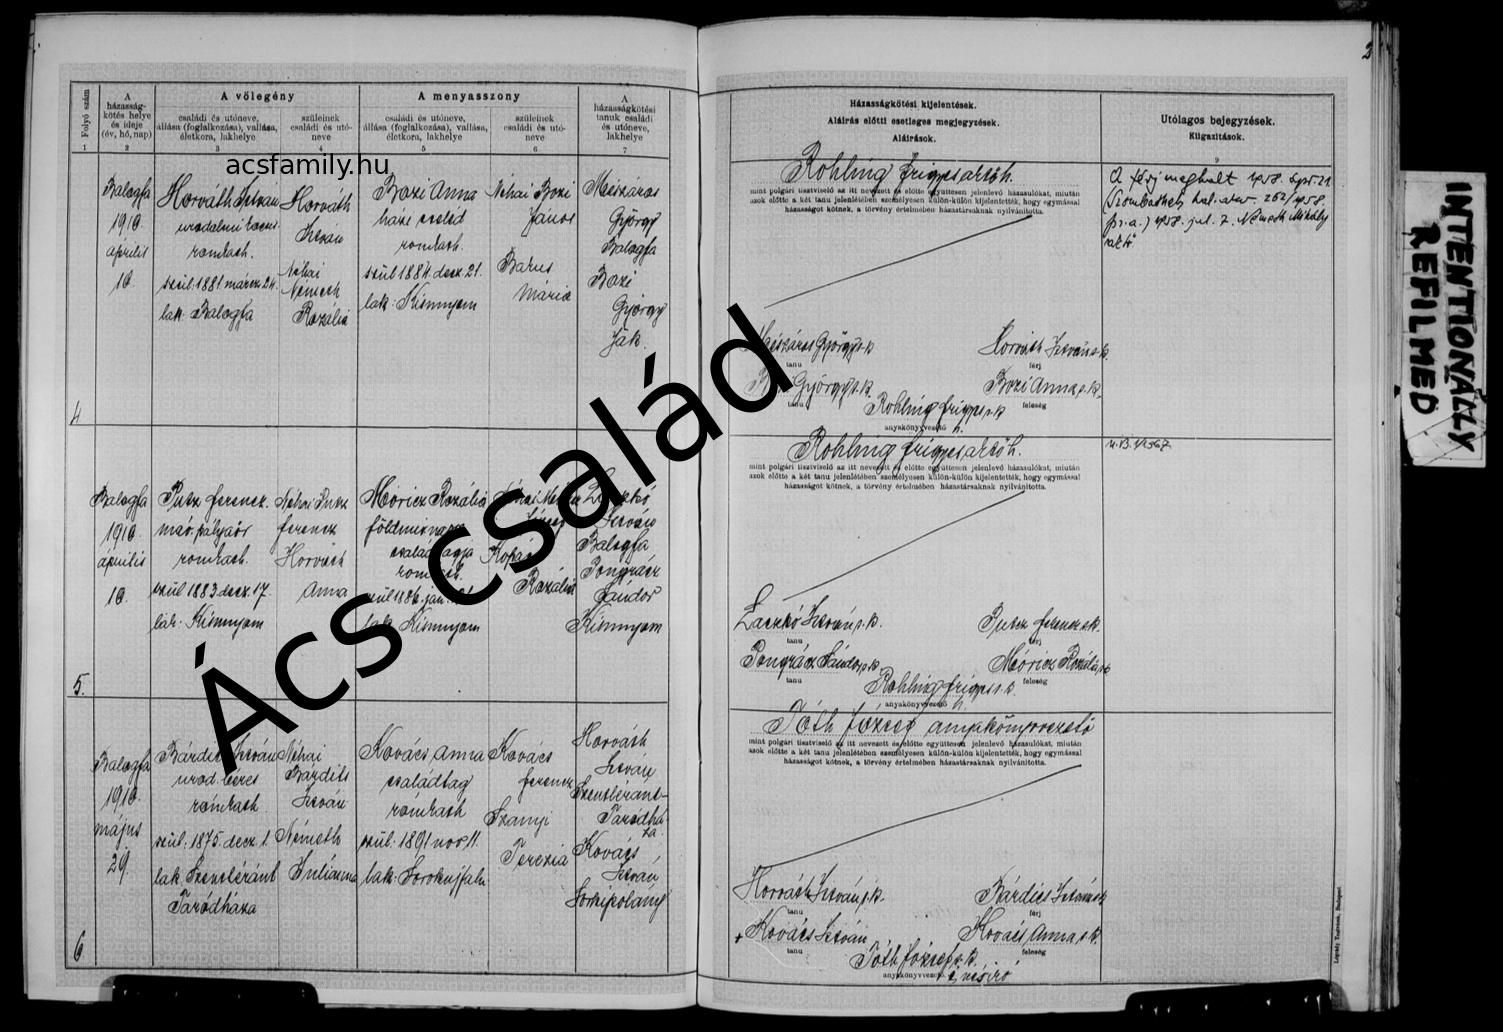 2
Folyó szám
A házasság-
kötés helye
és ideje
(év, hó, nap)
A vőlegény
családi és utóneve,
állása (foglalkozása), vallása,
életkora, lakhelye
szüleinek
családi és utó-
neve
A menyasszony
családi és utóneve,
állása (foglalkozása), vallása,
életkora, lakhelye
szüleinek
családi és utó-
neve
A
házasságkötési
tanuk családi
és utóneve,
lakhelye
1
2
3
4
5
6
7
9
Házasságkötési kijelentések.
Aláírás előtti esetleges megjegyzések.
Aláírások.
Utólagos bejegyzések.
Kiigazítások.
acsfamily.hu
Ács család
4
Balogfa
1910
április
10
Horváth István
uradalmi kocsis
rom. kath.
szül. 1881 márcz. 24.
lak: Balogfa
Horváth
István
Néhai
Németh
Rozália
Bozi Anna
házi cseléd
rom. kath.
szül. 1884 decz. 21.
lak: Kisunyom
Néhai Bozi
János
Mária
Mészáros
György
Balogfa
Bozi
György
Ják.
Rohling Frigyes
mint polgári tisztviselő az itt nevezett és előtte együttesen jelenlevő házasulókat, miután
azok előtte a két tanu jelenlétében személyesen külön-külön kijelentették, hogy egymással
házasságot kötnek, a törvény értelmében házastársaknak nyilvánította.
A férj meghalt 1958.
(Szombathely hal. akv. 262/1958.
1958. júl. 7. Németh Mihály
Mészáros György s.k.
tanu
Horváth István s.k.
férj
György s.k.
tanu
Bozi Anna s.k.
feleség
Rohling Frigyes s.k.
anyakönyvvezető h.
5.
Balogfa
1910
április
10.
Putz Ferencz
máv. pályaőr
rom. kath.
szül. 1883. decz. 17.
lak: Kisunyom
Néhai Putz
Ferencz
Horváth
Anna
Móricz Rozália
földmíves
családtagja
rom. kath.
lak: Kisunyom
Rozália
Laczkó
István
Balogfa
Pongrácz
Sándor
Kisunyom
Rohling Frigyes
mint polgári tisztviselő az itt nevezett és előtte együttesen jelenlevő házasulókat, miután
azok előtte a két tanu jelenlétében személyesen külön-külön kijelentették, hogy egymással
házasságot kötnek, a törvény értelmében házastársaknak nyilvánította.
Laczkó István s.k.
tanu
Putz Ferencz s.k.
férj
Pongrácz Sándor s.k.
tanu
Móricz Rozália s.k.
feleség
Rohling Frigyes s.k.
anyakönyvvezető h.
6
Balogfa
1910.
május
29.
Bárdics István
urad. béres
rom. kath.
szül. 1875. decz. 1.
lak. Szentléránt
Taródháza
Néhai
Bárdits
István
Németh
Julianna
Kovács Anna
családtag
rom. kath
szül. 1891 nov. 11.
lak: Sorokujfalu
Kovács
Ferencz
Szanyi
Terézia
Horváth
István
Szentléránt-
Taródhá-
za
Kovács
István
Sorkipolány
Tóth József anyakönyvvezető
mint polgári tisztviselő az itt nevezett és előtte együttesen jelenlevő házasulókat, miután
azok előtte a két tanu jelenlétében személyesen külön-külön kijelentették, hogy egymással
házasságot kötnek, a törvény értelmében házastársaknak nyilvánította.
Horváth István s.k.
tanu
Bárdics István s.k.
férj
+ Kovács István
tanu
Kovács Anna s.k.
feleség
Tóth József s.k.
anyakönyvvezető és névíró
INTENTIONALLY
REFILMED